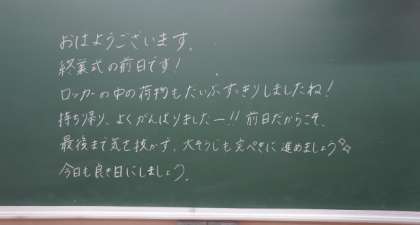 おはようございます。
終業式の前日です!
ロッカーの中の荷物もだいぶすっきりしましたね!
持ち帰り、よくがんばりましたー!! 前日だからこそ、
最後まで気を抜かず、大そうじも完ぺきに進めましょう
今日も良き日にしましょう。